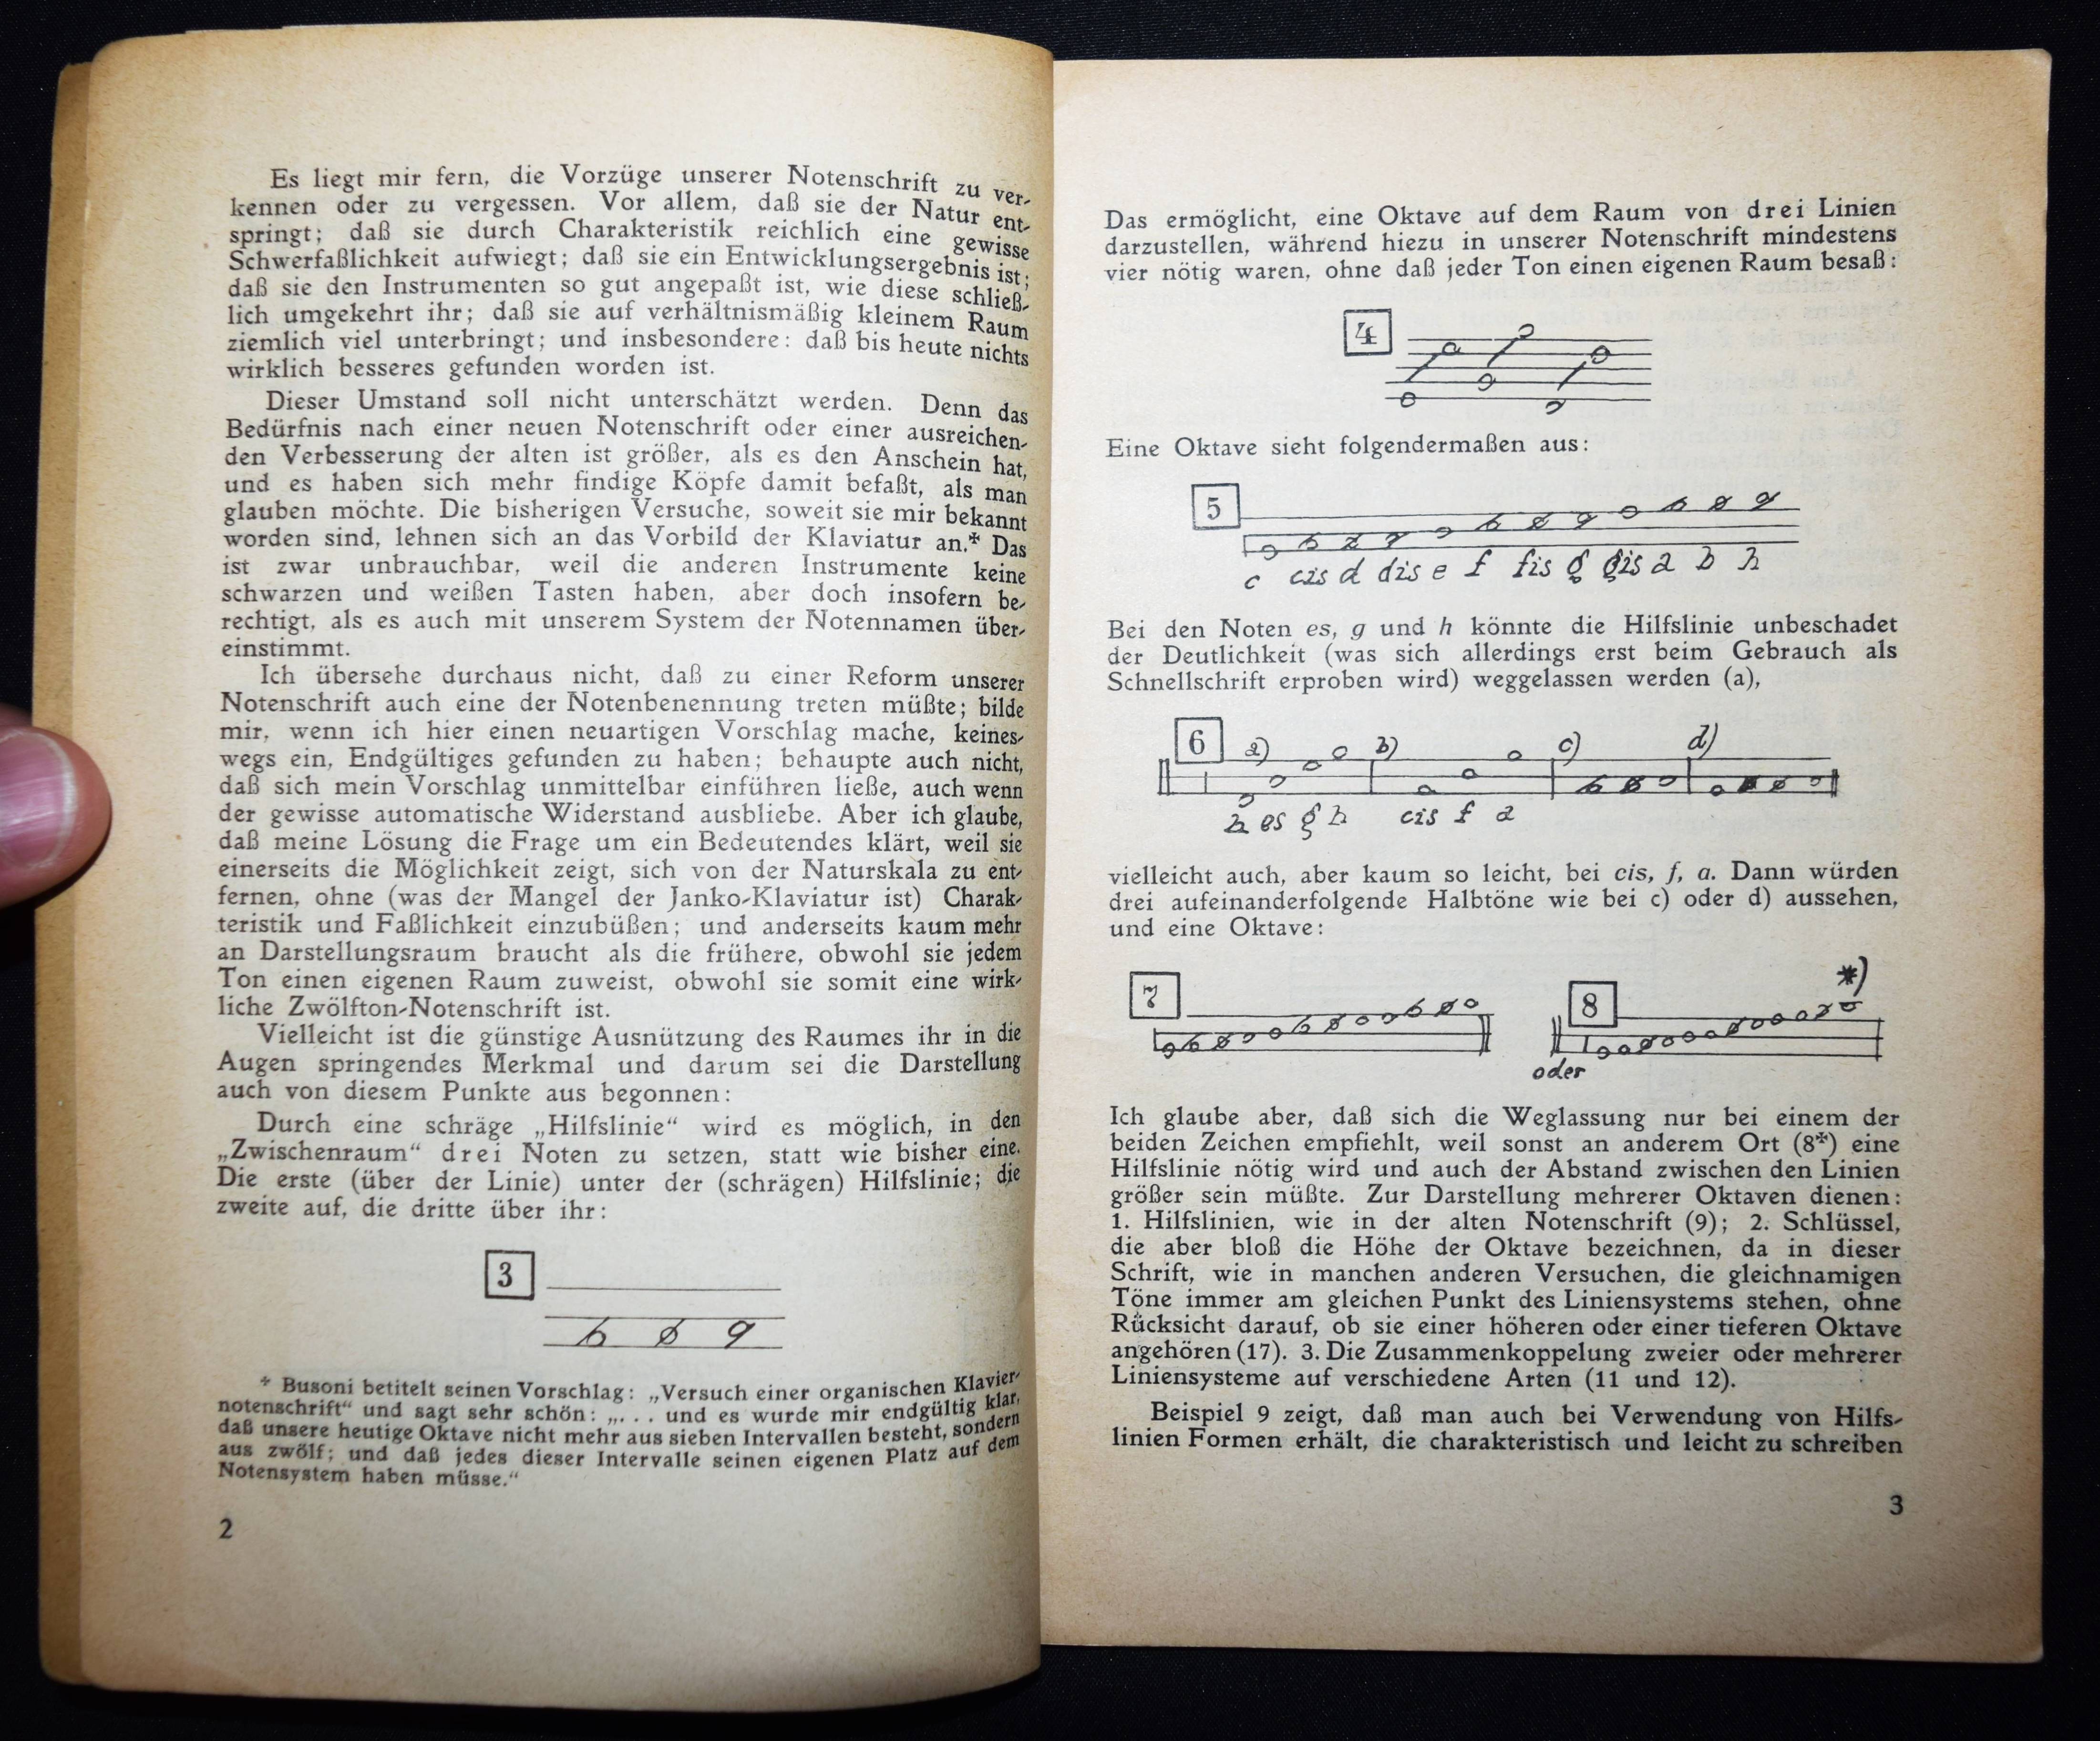 Es liegt mir fern, die Vorzüge unserer Notenschrift zu ver-
kennen oder zu vergessen. Vor allem, daß sie der Natur ent-
springt; daß sie durch Charakteristik reichlich eine gewisse
Schwerfaßlichkeit aufwiegt; daß sie ein Entwicklungsergebnis ist;
daß sie den Instrumenten so gut angepaßt ist, wie diese schließ-
lich umgekehrt ihr; daß sie auf verhältnismäßig kleinem Raum
ziemlich viel unterbringt; und insbesondere: daß bis heute nichts
wirklich besseres gefunden worden ist.
Dieser Umstand soll nicht unterschätzt werden. Denn das
Bedürfnis nach einer neuen Notenschrift oder einer ausreichen-
den Verbesserung der alten ist größer, als es den Anschein hat,
und es haben sich mehr findige Köpfe damit befaßt, als man
glauben möchte. Die bisherigen Versuche, soweit sie mir bekannt
worden sind, lehnen sich an das Vorbild der Klaviatur an.* Das
ist zwar unbrauchbar, weil die anderen Instrumente keine
schwarzen und weißen Tasten haben, aber doch insofern be-
rechtigt, als es auch mit unserem System der Notennamen über-
einstimmt.
Ich übersehe durchaus nicht, daß zu einer Reform unserer
Notenschrift auch eine der Notenbenennung treten müßte; bilde
mir, wenn ich hier einen neuartigen Vorschlag mache, keines-
wegs ein, Endgültiges gefunden zu haben; behaupte auch nicht,
daß sich mein Vorschlag unmittelbar einführen ließe, auch wenn
der gewisse automatische Widerstand ausbliebe. Aber ich glaube,
daß meine Lösung die Frage um ein Bedeutendes klärt, weil sie
einerseits die Möglichkeit zeigt, sich von der Naturskala zu ent-
fernen, ohne (was der Mangel der Janko-Klaviatur ist) Charak-
teristik und Faßlichkeit einzubüßen; und anderseits kaum mehr
an Darstellungsraum braucht als die frühere, obwohl sie jedem
Ton einen eigenen Raum zuweist, obwohl sie somit eine wirk-
liche Zwölfton-Notenschrift ist.
Vielleicht ist die günstige Ausnützung des Raumes ihr in die
Augen springendes Merkmal und darum sei die Darstellung
auch von diesem Punkte aus begonnen:
Durch eine schräge „Hilfslinie“ wird es möglich, in den
„Zwischenraum“ drei Noten zu setzen, statt wie bisher eine.
Die erste (über der Linie) unter der (schrägen) Hilfslinie; die
zweite auf, die dritte über ihr:
3
* Busoni betitelt seinen Vorschlag: „Versuch einer organischen Klavier-
notenschrift“ und sagt sehr schön: „. . . und es wurde mir endgültig klar,
daß unsere heutige Oktave nicht mehr aus sieben Intervallen besteht, sondern
aus zwölf; und daß jedes dieser Intervalle seinen eigenen Platz auf dem
Notensystem haben müsse.“
2
Das ermöglicht, eine Oktave auf dem Raum von drei Linien
darzustellen, während hiezu in unserer Notenschrift mindestens
vier nötig waren, ohne daß jeder Ton einen eigenen Raum besaß:
4
Eine Oktave sieht folgendermaßen aus:
5
c cis d dis e f fis g gis a b h
Bei den Noten es, g und h könnte die Hilfslinie unbeschadet
der Deutlichkeit (was sich allerdings erst beim Gebrauch als
Schnellschrift erproben wird) weggelassen werden (a),
6 a) b) c) d)
h es g h cis f a
vielleicht auch, aber kaum so leicht, bei cis, f, a. Dann würden
drei aufeinanderfolgende Halbtöne wie bei c) oder d) aussehen,
und eine Oktave:
7 8 *)
oder
Ich glaube aber, daß sich die Weglassung nur bei einem der
beiden Zeichen empfiehlt, weil sonst an anderem Ort (8*) eine
Hilfslinie nötig wird und auch der Abstand zwischen den Linien
größer sein müßte. Zur Darstellung mehrerer Oktaven dienen:
1. Hilfslinien, wie in der alten Notenschrift (9); 2. Schlüssel,
die aber bloß die Höhe der Oktave bezeichnen, da in dieser
Schrift, wie in manchen anderen Versuchen, die gleichnamigen
Töne immer am gleichen Punkt des Liniensystems stehen, ohne
Rücksicht darauf, ob sie einer höheren oder einer tieferen Oktave
angehören (17). 3. Die Zusammenkoppelung zweier oder mehrerer
Liniensysteme auf verschiedene Arten (11 und 12).
Beispiel 9 zeigt, daß man auch bei Verwendung von Hilfs-
linien Formen erhält, die charakteristisch und leicht zu schreiben
3